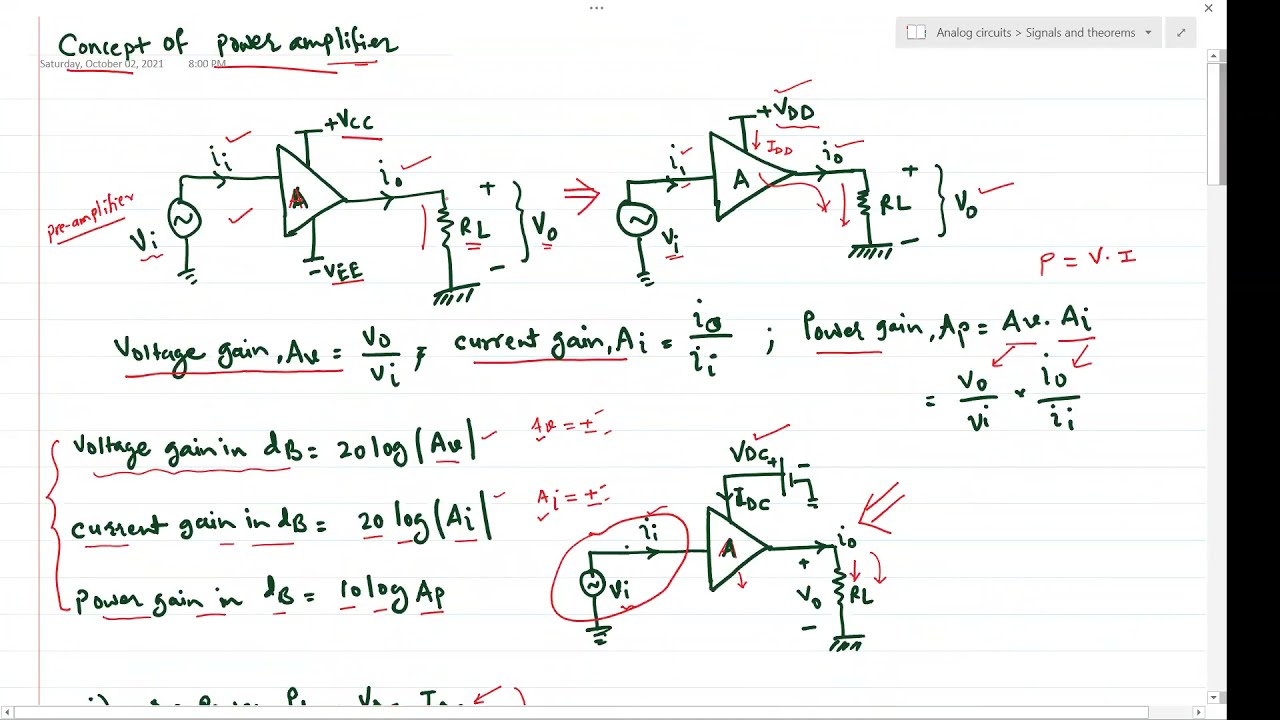 Concept of power amplifier
Saturday, October 02, 2021 8:00 PM
Analog circuits > Signals and theorems
+VCC
ii
A
io
pre-amplifier
Vi
-VEE
+
RL
-
Vo
⇒
+VDD
IDD
ii
A
io
Vi
+
RL
-
Vo
P = V. I
Voltage gain, Av = Vo/Vi ; current gain, Ai = io/ii ; Power gain, Ap = Av. Ai
= Vo/Vi * io/ii
Voltage gain in dB = 20 log |Av| Av = ±
current gain in dB = 20 log |Ai| Ai = ±
Power gain in dB = 10 log Ap
VDC + -
IDC
ii
A
io
Vi
+
Vo
-
RL